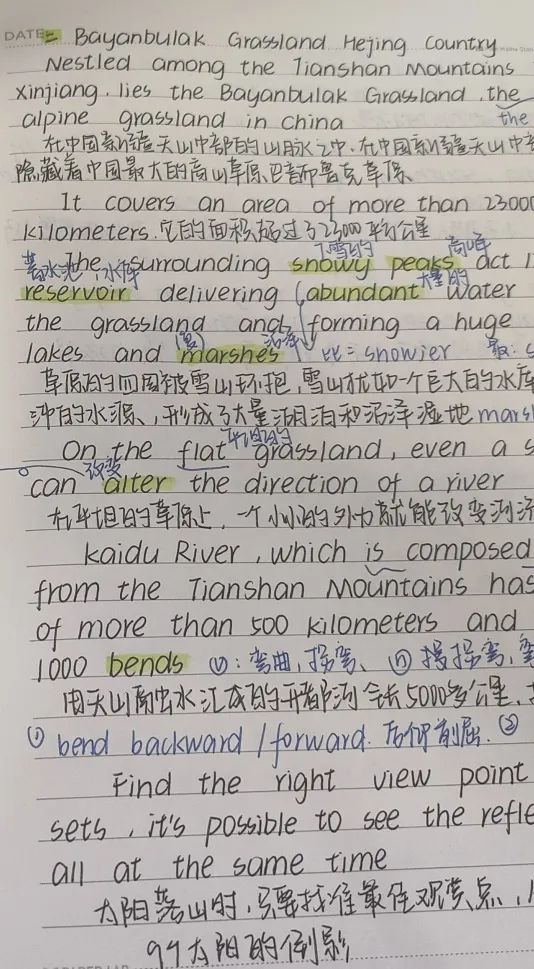 DATE = Bayanbulak Grassland Hejing Country
Nestled among the Tianshan Mountains
xinjiang. lies the Bayanbulak Grassland, the
alpine grassland in china the
在中国新疆天山中部的山脉之中.在中国新疆天山中
隐藏着中国最大的高山草原巴音布鲁克草原、
It covers an area of more than 23000
kilometers.它的面积超过了23000平方公里
下雪的 高峰
蓄水池,水库 the surrounding snowy peaks act
reservoir delivering (abundant 大量的 water
the grassland and forming a huge
lakes and marshes 沼泽 比:snowier 最:
草原的四周被雪山环抱,雪山犹如一个巨大的水库
的水源、形成了大量湖泊和沼泽湿地
On the flat 平坦的 grassland, even a s
can alter 改变 the direction of a river
在平坦的草原上,一个小小的外力就能改变河流
kaidu River, which is composed
from the Tianshan Mountains has
of more than 500 kilometers and
1000 bends ①:弯曲,拐弯、 ⑪ 拐弯,
由天山高出水汇成的开都河全长5000多公里,
① bend backward / forward. 后仰前屈. ②
Find the right view point
sets, it's possible to see the refle
all at the same time
太阳落山时,只要找准最佳观赏点、
99太阳的倒影